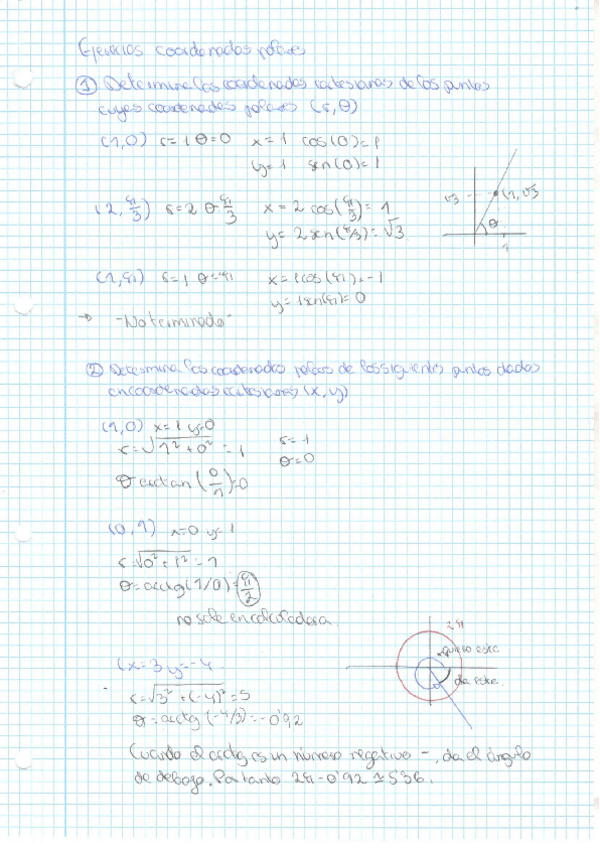 Ejercicios coordenadas polares
① Determina las coordenadas cartesianas de los puntos
cuyas coordenadas polares (r, θ)
(1,0) r=1 θ=0 x=1 cos(0)=1
y=1 sen(0)=1
(2, π/3) r=2 θ=π/3 x=2 cos(π/3)=1
y=2 sen(π/3)=√3
√3 (1,√3
θ
1
(1,π) r=1 θ=π x=1cos(π)=-1
y=1sen(π)=0
→ -No terminado-
② Determina las coordenadas polares de los siguientes puntos dados
en coordenadas cartesianas (x,y)
(1,0) x=1 y=0
r=√1²+0² = 1 r=1
θ=0
θ arctan(0/1)=0
(0,1) x=0 y=1
r=√0²+1²=1
θ=arctg(1/0)=π/2
no sale en calculadora
(x=3 y=-4
r=√3²+(-4)²=5
θ=arctg(-4/3)=-0'92
2π
quiero este
da este
Cuando el arctg es un número negativo -, da el ángulo
de debajo. Por tanto 2π-0'92≈5'36.